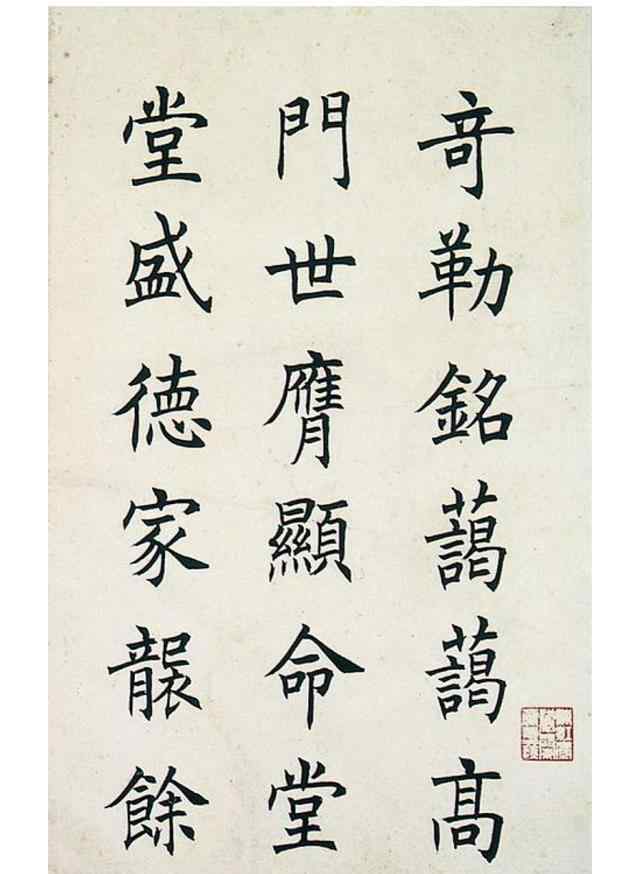 奇勒銘藹藹高
門世膺顯命堂
堂盛德家襲餘